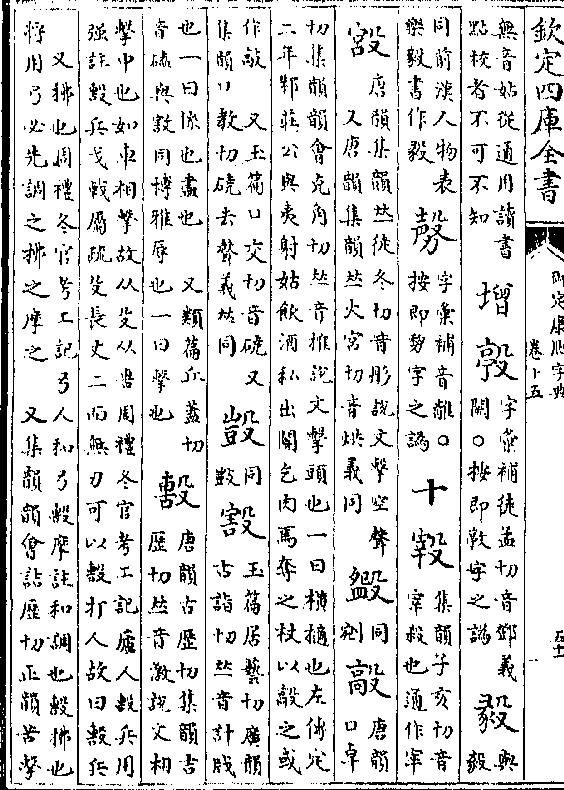 欽定四庫全書
御定康熙字典
卷十五
無音姑從通用讀書
點校者不可不知
增
字彙補徒孟切音鄧義
闕○按即敦字之譌
毅
與毅
同前漢人物表
樂毅書作毅
字彙補音離○
按即剺字之譌
十
㝮
集韻子亥切音
宰殺也通作宰
唐韻集韻𠀤徒冬切音彤說文擊空聲
又唐韻集韻𠀤火宮切音烘義同
同
敲
唐韻
口卓
切集韻韻會克角切𠀤音推說文擊頭也一曰橫擿也左傳定
二年邾莊公與夷射姑飲酒私出閽乞肉焉奪之杖以敲之或
作敲 又玉篇口交切音磽又
集韻口教切磽去聲義𠀤同
同
㲅
玉篇居藝切廣韻
古詣切𠀤音計戕
也一曰係也盡也 又類篇丘蓋切
音磕與㱁同博雅辱也一曰擊也
毄
唐韻古歷切集韻吉
歷切𠀤音激說文相
擊中也如車相擊故从殳从軎周禮冬官考工記廬人毄兵用
强註毄兵戈戟屬疏殳長丈二而無刃可以毄打人故曰毄兵
又拂也周禮冬官考工記弓人和弓毄摩註和調也毄拂也
將用弓必先調之拂之摩之 又集韻韻會詰歷切正韻苦擊